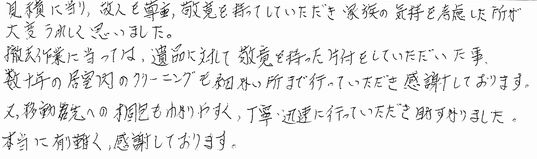 見積に当り、故人を尊重、敬意を持ってしていただき家族の気持を考慮した所が
大変うれしく思いました。
撤去作業に当っては、遺品に対して敬意を持った片付をしていただいた事、
数十年の居室内のクリーニングも細かい所まで行っていただき感謝しております。
又、移動 先への 配もわかりやすく、丁寧・迅速に行っていただき助かりました。
本当に有難く、感謝しております。